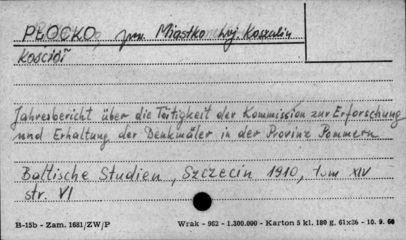 PŁOCKO pow. Miastko woj. Koszalin
Kościół
Jahresbericht über die Tätigkeit der Kommission zur Erforschung
und Erhaltung der Denkmäler in der Provinz Pommern
Baltische Studien, Szczecin 1910, tom XIV
str. VI
B-15b - Zam. 1681/ZW/P Wrak - 962 - 1.300.000 - Karton 5 kl. 180 g. 61x36 - 10. 9. 60